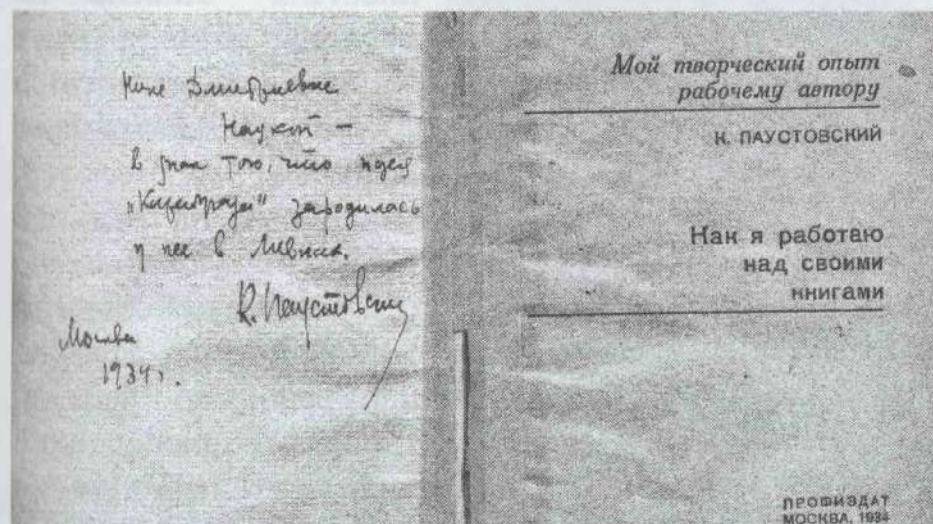 Нине Дмитриевне
Нацкой —
в знак того, что идея
„Карабугаза" зародилась
у нее в Ливнах.
К. Паустовский
Москва
1934 г.
Мой творческий опыт
рабочему автору
К. ПАУСТОВСКИЙ
Как я работаю
над своими
книгами
ПРОФИЗДАТ
МОСКВА, 1934